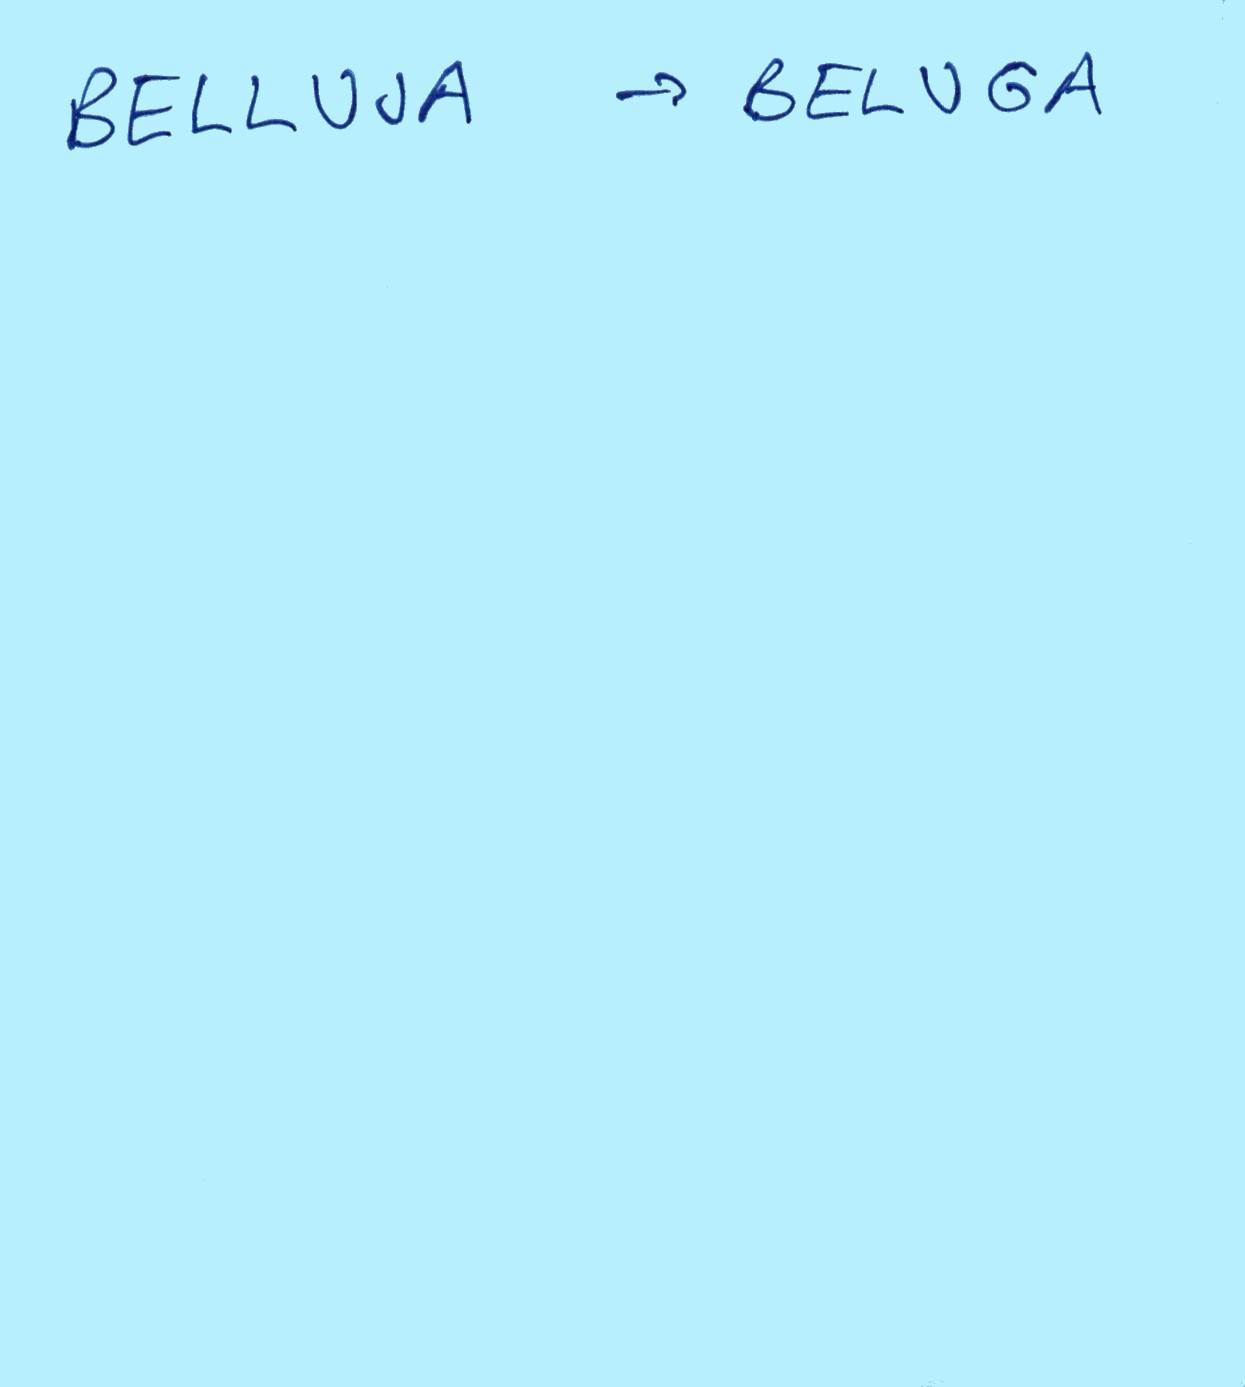 BELLUJA → BELUGA